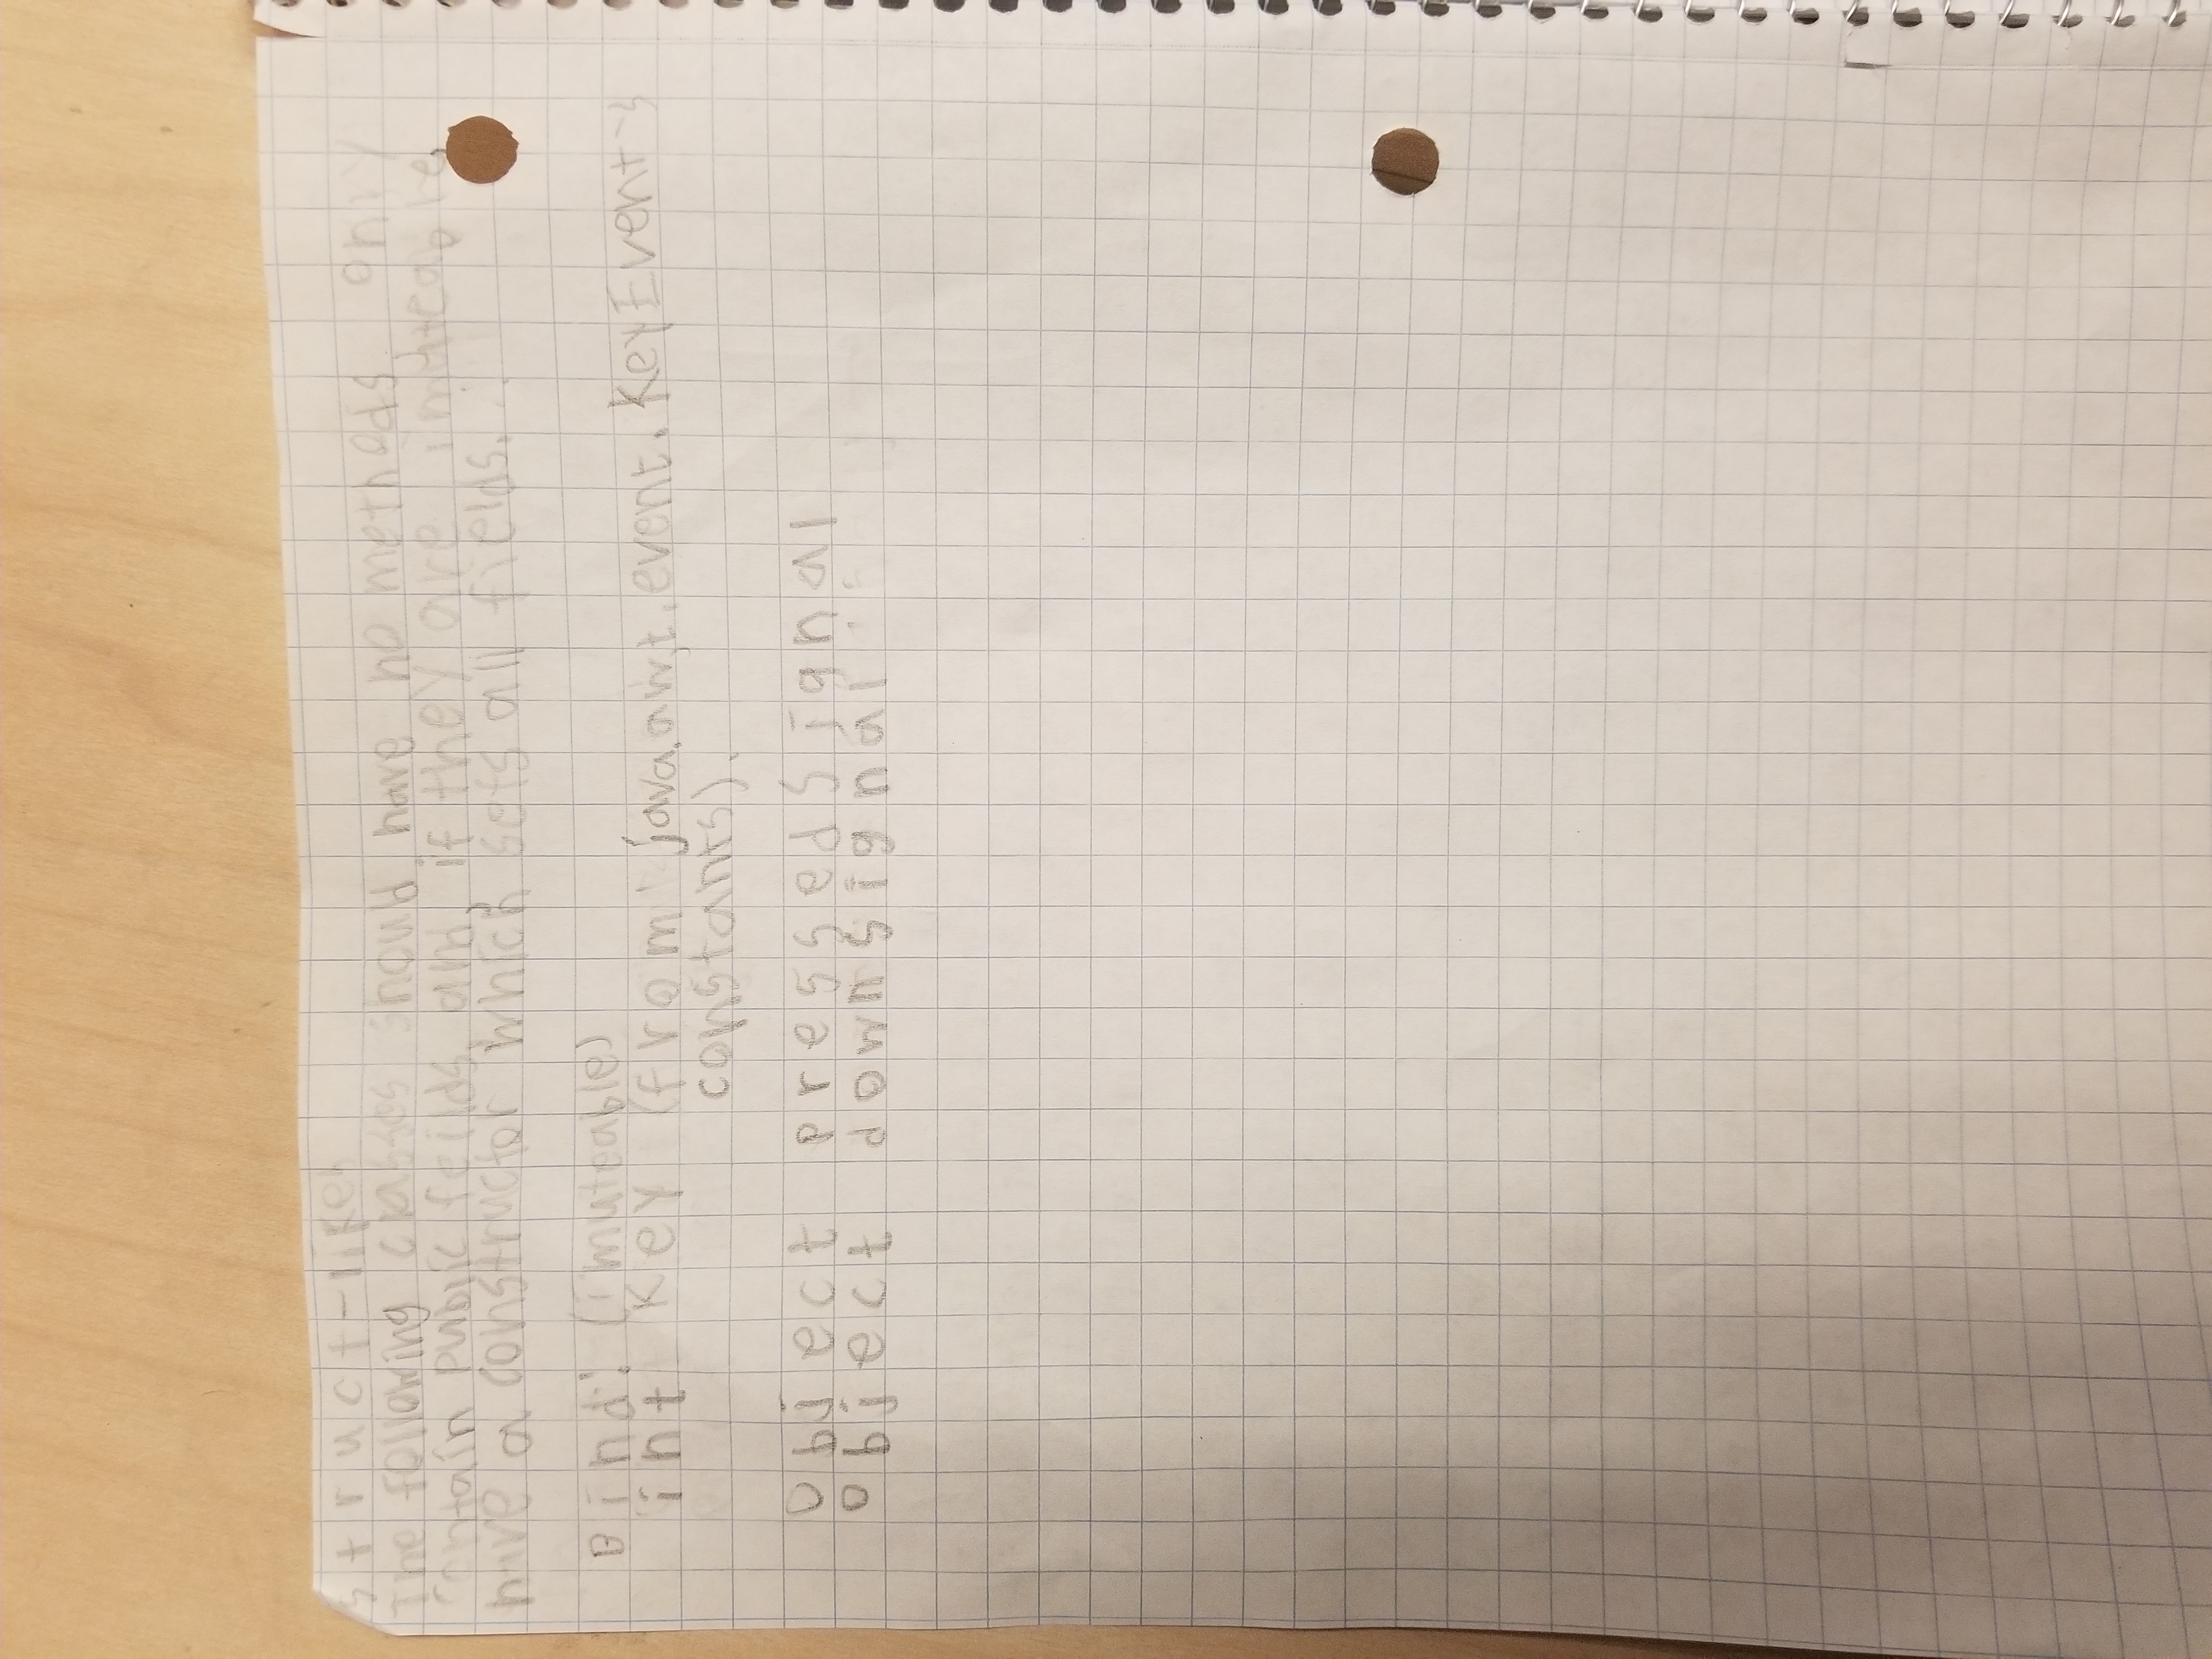 struct-likes
The following classes should have no methods, only
contain public feilds, and, if they are imuteable,
have a constructor which sets all fields.
Bind: (imuteable)
int key (from java.awt.event.KeyEvent's
constants).
Object pressedSignal
Object downsignal